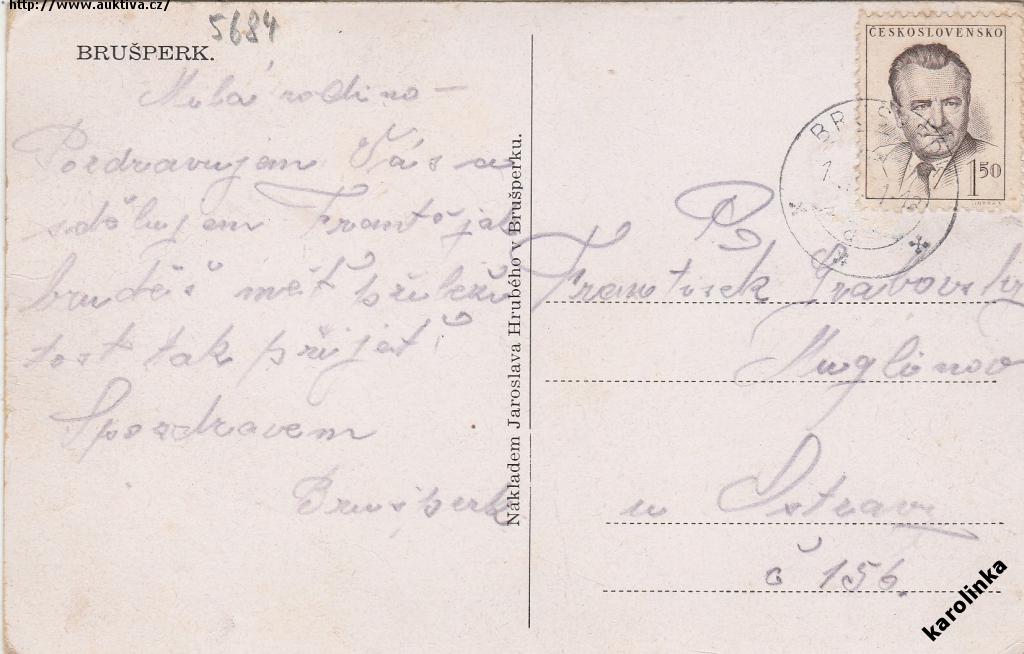 http://www.auktiva.cz/
5684
BRUŠPERK.
Milá rodino —
Pozdravujem Vás a
sdělujem Frantó jak
budeš mět příleži
tost tak přijeť
S pozdravem
Brušperk
Nákladem Jaroslava Hrubého v Brušperku.
ČESKOSLOVENSKO
1 50
František Grabovský
Muglinov
u Ostravi
č 156.
karolinka